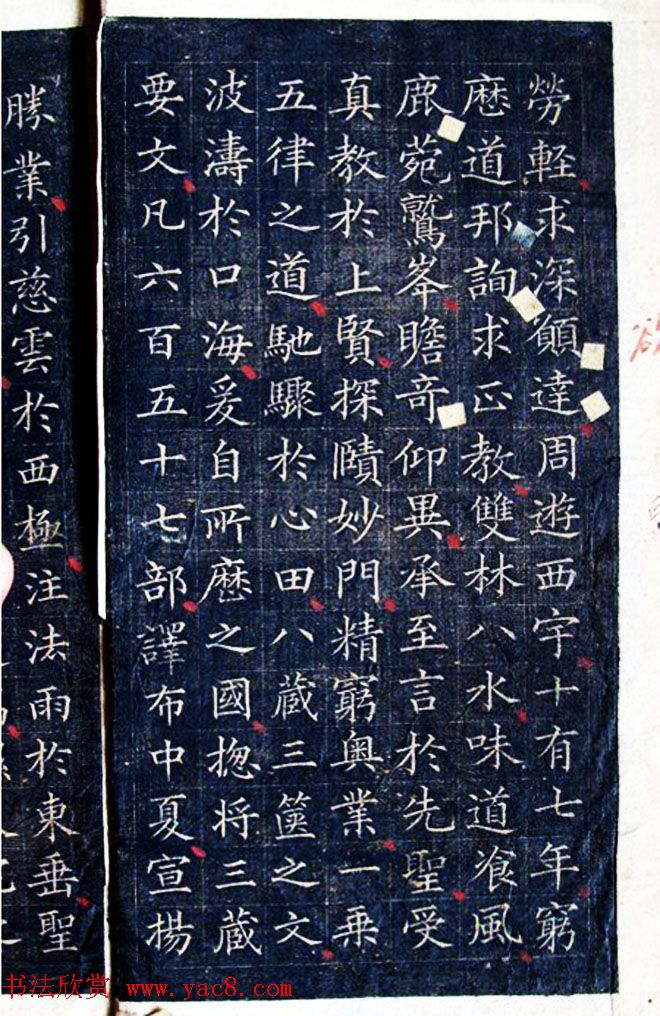 勞軽求深願達周遊西宇十有七年窮
厯道邦詢求正教雙林八水味道飡風
鹿菀鷲峯瞻奇仰異承至言於先聖受
真教於上賢探賾妙門精窮奥業一乗
五律之道馳驟於心田八蔵三篋之文
波濤於口海爰自所厯之國揔将三蔵
要文凡六百五十七部譯布中夏宣揚
勝業引慈雲於西極注法雨於東垂聖
书法欣赏 www.yac8.com